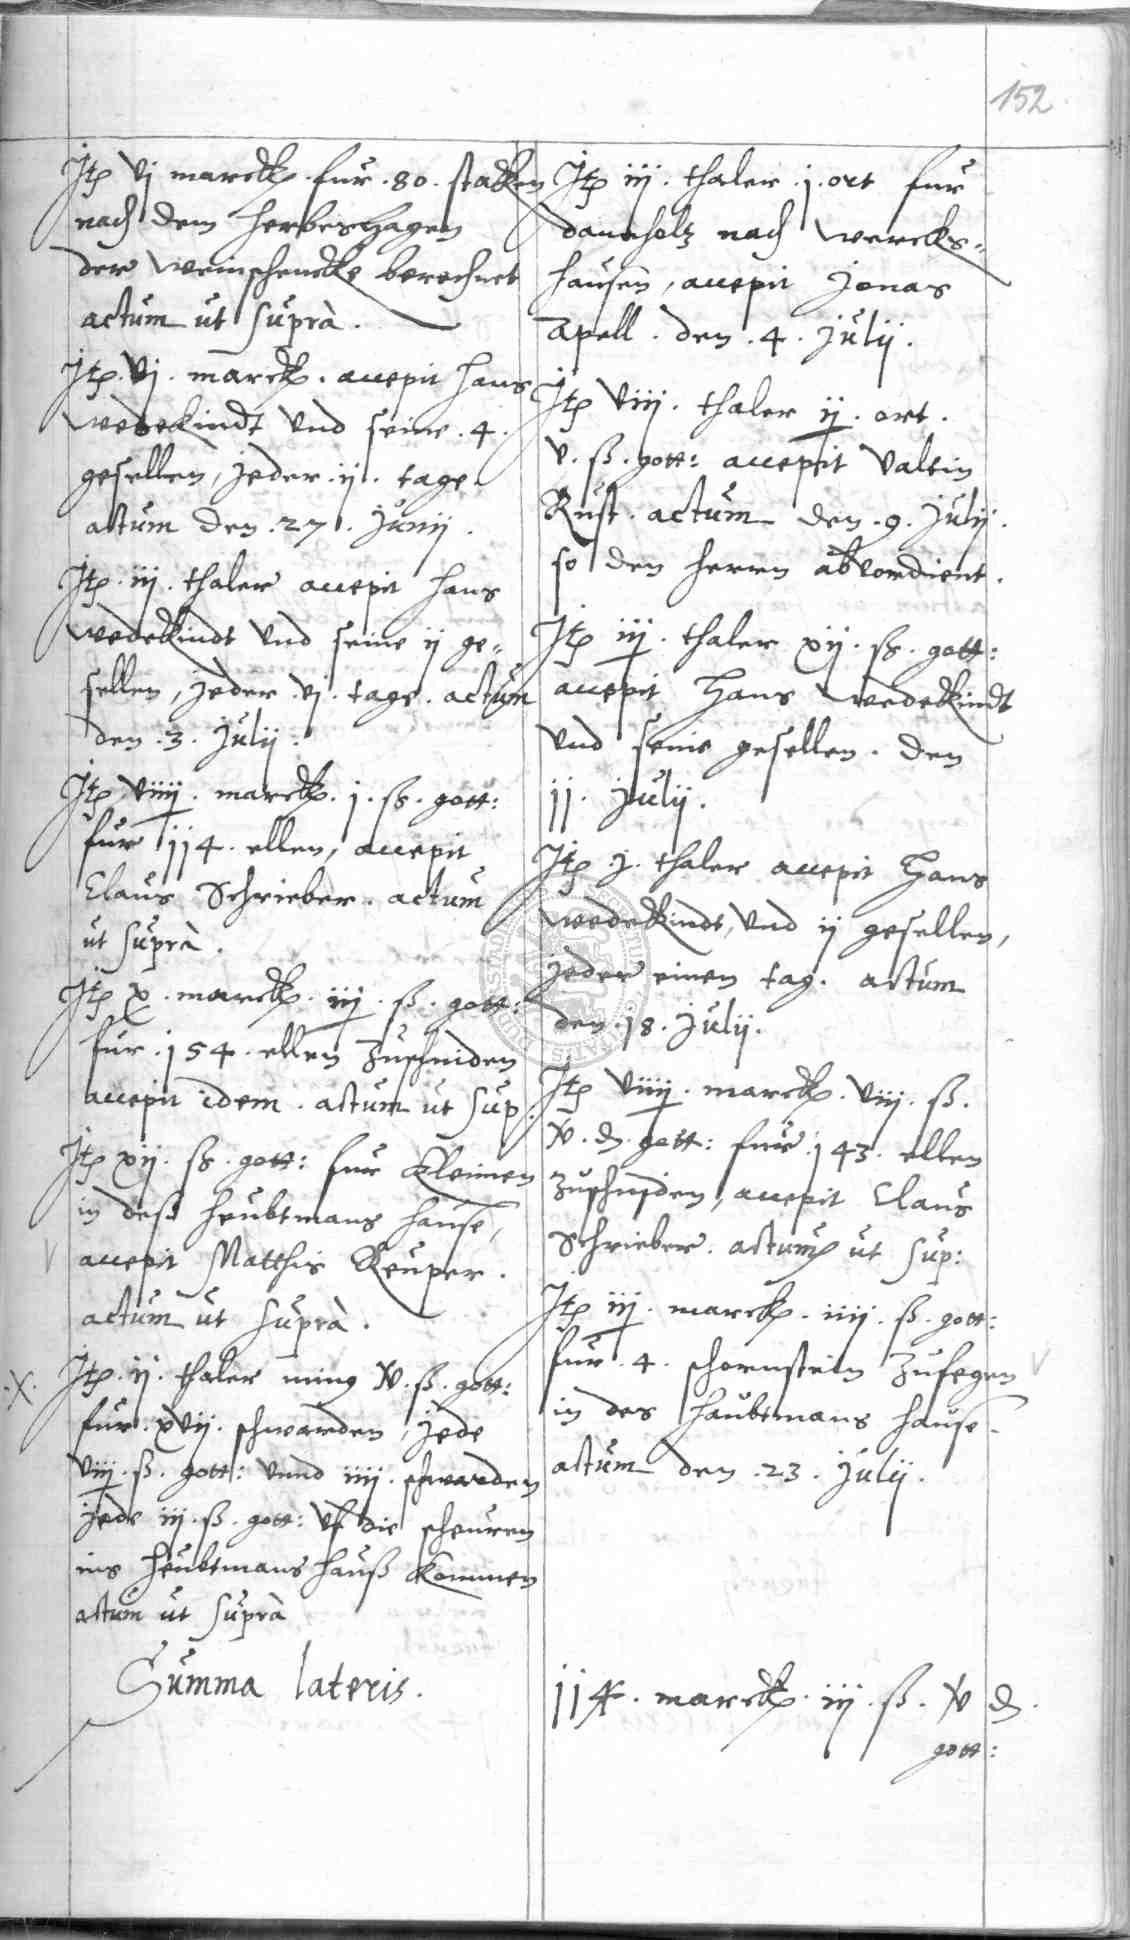 152
Jtem vj marck. fur .80. stacken
nach dem herbershagen
der weinschencke berechnet
actum ut suprà.
Jtem. vj. marck. accepit Hans
Wedekindt vnd seine .4.
gesellen, jeder .ij. tage.
actum den .27. Junij.
Jtem. iij. thaler accepit Hans
Wedekindt vnd seine ij ge-
sellen, jeder .vj. tage. actum
den .3. Julij.
Jtem viiij. marck. j. ß. gott:
fur 114. ellen, accepit
Claus Schrieber. actum
ut suprà.
Jtem x. marck. iij. ß. gott:
fur .154. ellen zuschniden
accepit idem. actum ut sup.
Jtem xij. ß. gott: fur kleimen
in deß heubtmans hause,
accepit Matthis Reuper.
actum ut suprà.
.X. Jtem. ij. thaler ming xv. ß. gott:
fur. xvij. schwarden, jede
viij. ß. gott: vnnd iiij. schwarden
jede iij. ß. gott: vf die scheuren
ins heubtmans hauß kommen
actum ut suprà
Jtem iij. thaler .j. ort fur
dannholtz nach Wercks-
hausen, accepit Jonas
Apell. den .4. Julij.
Jtem viij. thaler ij. ort.
v. ß. gott: accepit Valtin
Rust. actum den .9. Julij.
so den herrn abverdient.
Jtem iij. thaler xij. ß. gott:
accepit Hans Wedekindt
vnd seine gesellen. den
11. Julij.
Jtem j. thaler accepit Hans
Wedekindt, vnd ij gesellen,
jeder einen tag. actum
den .18. Julij.
Jtem viiij. marck. viij. ß.
xv. d. gott: fur 143. ellen
zuschniden, accepit Claus
Schrieber. actum ut sup:
Jtem iij. marck. iiij. ß. gott:
fur .4. schornstein zufegen
in des haubtmans hause.
actum den .23. Julij.
Summa lateris.
114. marck. iij. ß. xv d.
gott: